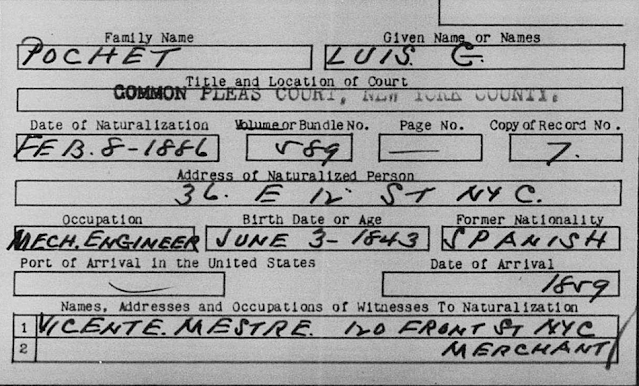 Family Name Given Name or Names
POCHET LUIS. G.
Title and Location of Court
COMMON PLEAS COURT, NEW YORK COUNTY.
Date of Naturalization Volume or Bundle No. Page No. Copy of Record No.
FEB. 8-1886 589 — 7.
Address of Naturalized Person
36. E 12 ST NYC.
Occupation Birth Date or Age Former Nationality
MECH. ENGINEER JUNE 3-1843 SPANISH
Port of Arrival in the United States Date of Arrival
1859
Names, Addresses and Occupations of Witnesses To Naturalization
1 VICENTE. MESTRE. 120 FRONT ST NYC
2 MERCHANT